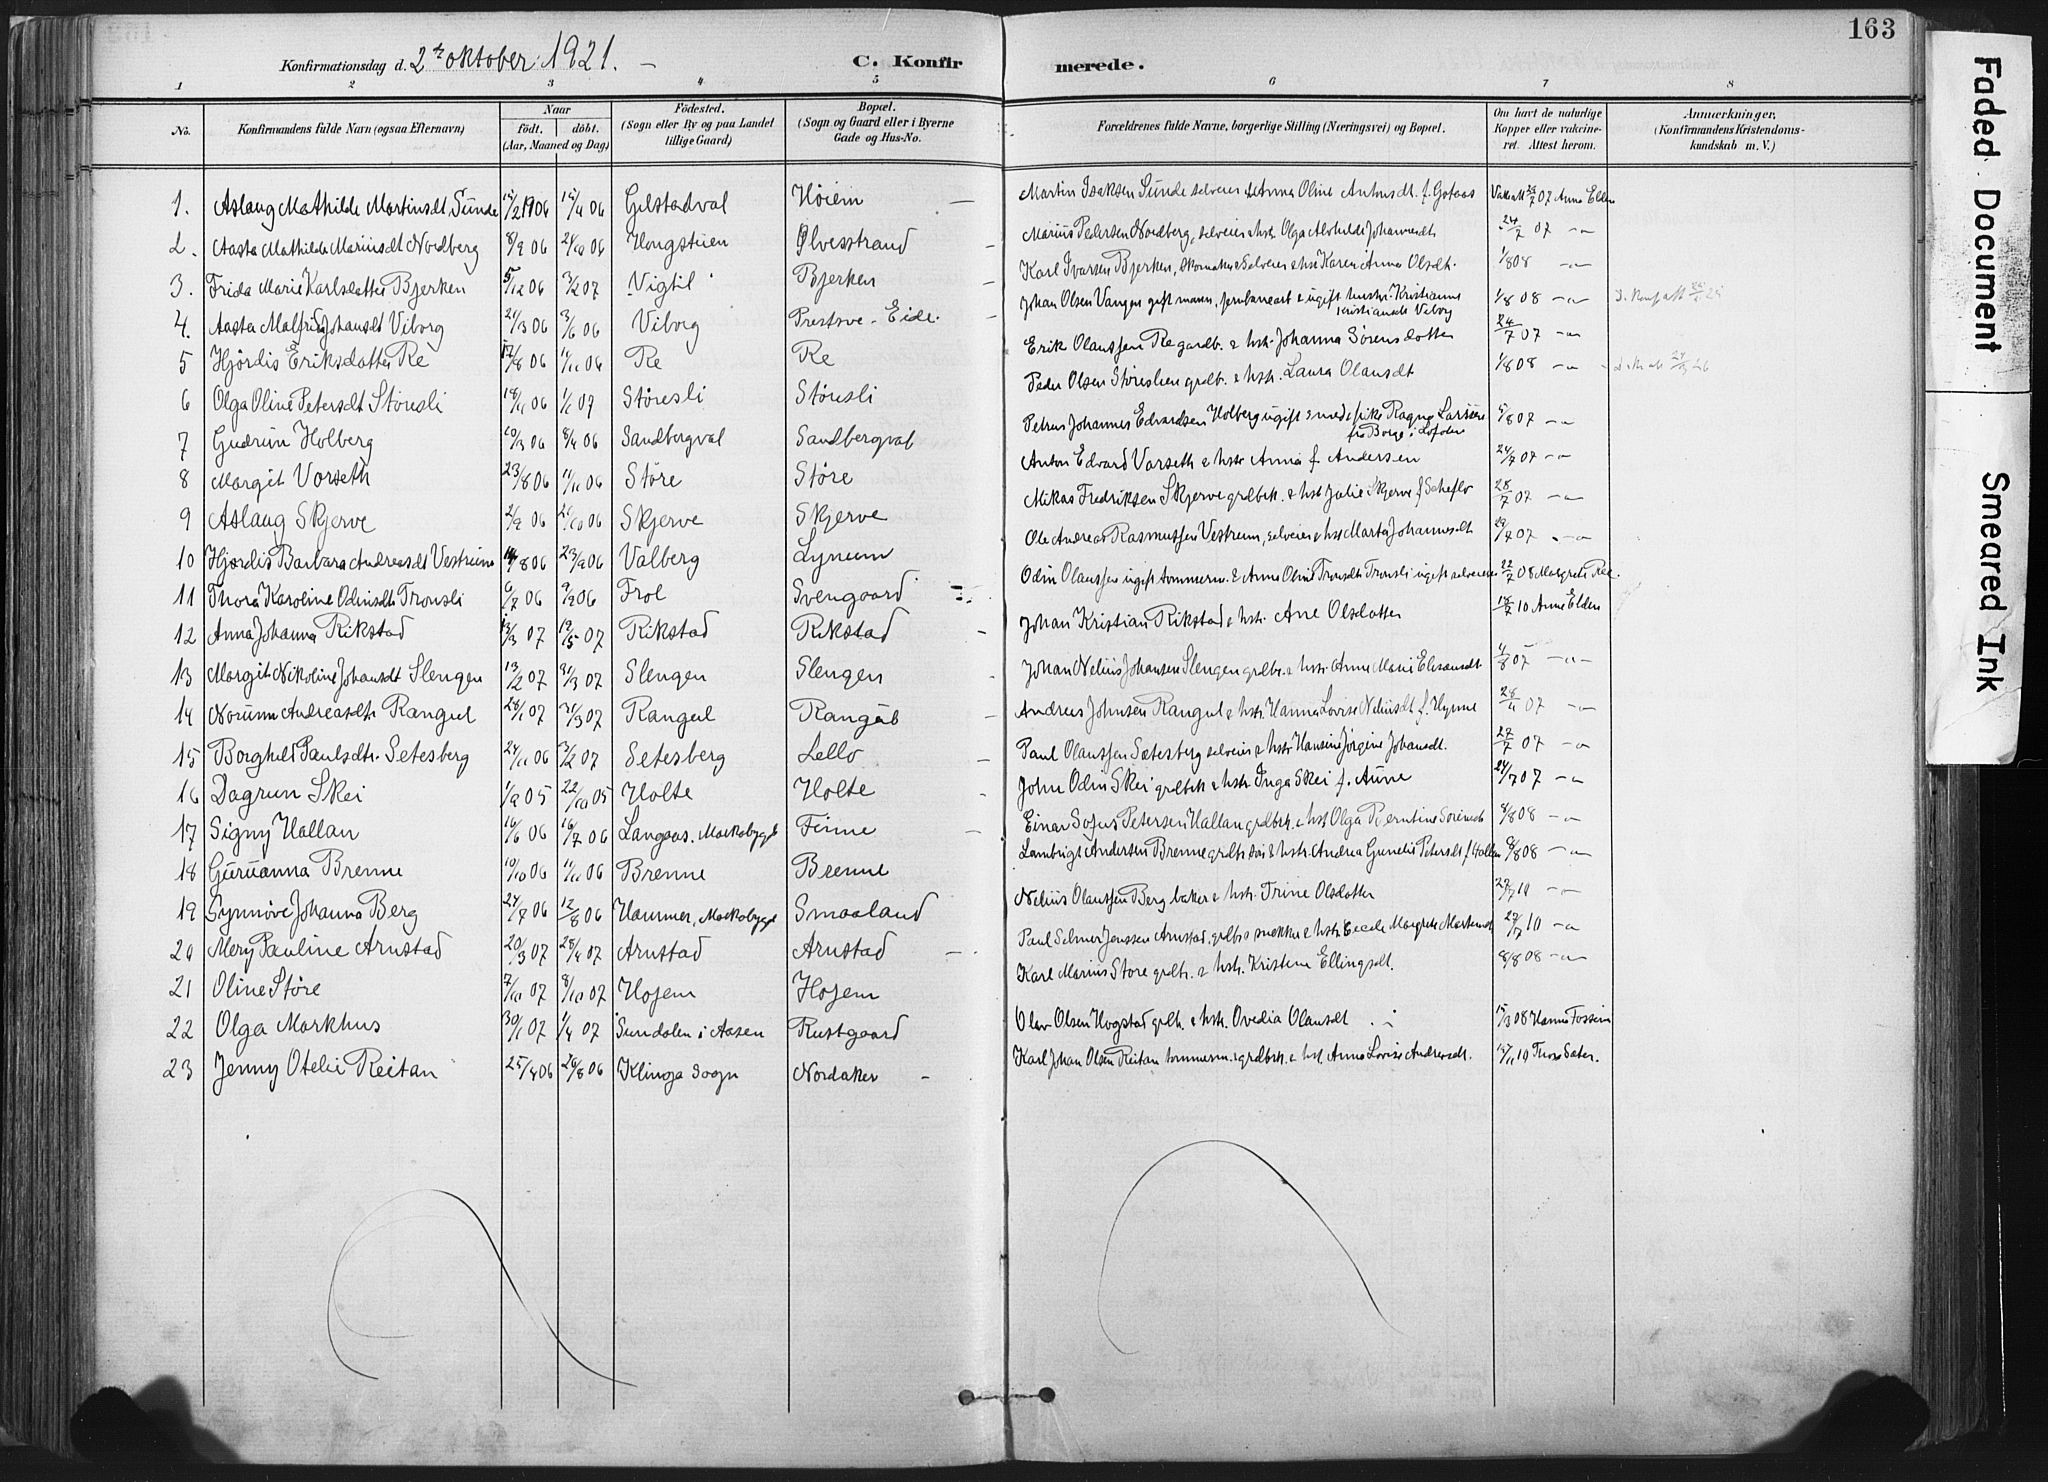 163
Konfirmationsdag d. 2de oktober 1921. –
C. Konfirmerede.
1 2 3 4 5 6 7 8
No.
Konfirmandens fulde Navn (ogsaa Efternavn)
Naar
födt. döbt.
(Aar, Maaned og Dag)
Födested.
(Sogn eller By og paa Landet
tillige Gaard)
Bopæl.
(Sogn og Gaard eller i Byerne
Gade og Hus-No.
Forældrenes fulde Navne, borgerlige Stilling (Næringsvei) og Bopæl.
Om havt de naturlige
Kopper eller vakcine-
ret. Attest herom.
Anmærkninger,
(Konfirmandens Kristendoms-
kundskab m. V.)
1. Aslaug Mathilde Martinsdt. Sunde 15/2 1906 15/4 06 Gilstadval Höiem – Martin Isaksen Sunde selveier & Anna Oline Antonsdt. f. Gotaas 07 Anna Elden
2. Aasta Mathilde Mariusdt Nordberg 8/9 06 21/10 06 Hongstuen Ølvesstrand – Marius Pedersen Nordberg, selveier & hstr. Olga Alvhilde Johannesdt 24/7 07 –"–
3. Frida Marie Karlsdatter Bjerken 5/12 06 3/2 07 Vigtil Bjerken – Karl Ivarsen Bjerken, skomaker & selveier & hst Karen Anna Olsdt. 1/8 08 –"–
4. Aasta Malfrid Johansdt Viborg 21/3 06 3/6 06 Viborg Prestsve - Eide. – Johan Olsen Vangen gift mann, & ugift hustr. Kristianne Kristiansdt Viborg 1/8 08 –"–
5 Hjördis Eriksdatter Re 17/8 06 11/11 06 Re Re Erik Olaussen Re gardb. & hstr. Johanna Sörensdatter 24/7 07 –"–
6 Olga Oline Petersdt Störesli 18/11 06 1/1 07 Störesli Störesli Peder Olsen Störeslien grdb. & hstr. Laura Olausdt 1/8 08 –"–
7 Gudrun Holberg 10/3 06 8/4 06 Sandbergval Sandbergval Petrus Johannes Edvardsen Holberg ugift smed & pike Ragna Larssen fra Borge i Lofoten 5/8 07 –"–
8 Margit Vorseth 23/8 06 11/11 06 Störe Störe Anton Edvard Vorseth & hstr Anna f. Andersen 24/7 07 –"–
9 Aslaug Skjerve 2/9 06 21/10 06 Skjerve Skjerve Mikas Fredriksen Skjerve grdbrk. & hst Julie Skjerve f Scheflo 28/7 07 –"–
10 Hjördis Barbara Andreasdt Vestrum 14/8 06 23/9 06 Valberg Lyneum Ole Andreas Rasmussen Vestrum, selveier & hst Marta Johannesdt 29/7 07 –"–
11 Thora Karoline Odinsdt Tronsli 6/7 06 9/9 06 Frol Svengaard Odin Olaussen ugift tömmerm. & Anna Oline Tronsdt Tronsli ugift selveier 22/7 08 Margrete Ree.
12 Anna Johanna Rikstad 13/3 07 19/5 07 Rikstad Rikstad – Johan Kristian Rikstad & hstr. Ane Olsdatter 18/7 10 Anna Elden
13 Margit Nikoline Johansdt Slengen 13/2 07 31/3 07 Slengen Slengen – Johan Nelius Johansen Slengen grdbr. & hstr. Anna Marie Eliseusdt 4/8 07 –"–
14 Norunn Andreasdtr Rangul 28/1 07 31/3 07 Rangul Rangul – Andreas Johnsen Rangul & hstr. Hanna Lovise Neliusdt f. Hynne 28/11 07 –"–
15 Borghild Paulsdtr. Setesberg 24/11 06 3/2 07 Setesberg Lello – Paul Olaussen Sætesberg selveier & hstr Hansine Jörgine Johansdt. 27/7 07 –"–
16 Dagrun Skei 1/9 05 22/10 05 Holte Holte – John Odin Skei grdbrk & hstr Inga Skei f. Aune 24/7 07 –"–
17 Signy Hallan 16/6 06 16/7 06 Langaas. Markabygd Finne – Einar Sofus Petersen Hallan grdbrk. & hst Olga Berntine Sörensdt 8/8 08 –"–
18 Guruanna Brenne 10/10 06 11/11 06 Brenne Brenne Lambrigt Andersen Brenne grdbr & hstr. Andrea Gunelie Petersdt f Hallan 8/8 08 –"–
19 Synnöve Johanna Berg 24/7 06 12/8 06 Hammer, Markabygd Smaaland Nelius Olaussen Berg baker & hstr. Trine Olsdatter 27/7 10 –"–
20 Mery Pauline Arnstad 20/3 07 28/4 07 Arnstad Arnstad – Paul Selmer Jenssen Arnstad, grdbr & snekker & hstr Cecele Margrete Martensdt 27/7 10 –"–
21 Oline Störe 7/10 07 8/10 07 Hojem Hojem Karl Marius Störe grdbr. & hstr. Kristine Ellingsdt. 8/8 08 –"–
22 Olga Markhus 30/1 07 1/4 07 Sundalen i Aasen Rustgaard Olav Olsen Hogstad grdb. & hstr. Ovedia Olausdt 15/3 08 Hanna Fossum
23 Jenny Otelie Reitan 25/4 06 26/8 06 Klinga Sogn Nordaker – Karl Johan Olsen Reitan tömmerm. & grdbrk. & hst Anna Lovise Andreasdt. 10 Tora Sæter.
Faded Document
Smeared Ink